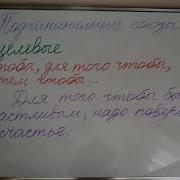 Подчинительные союзы
целевые
чтобы, для того чтобы,
тем чтобы...
Для того чтобы бы
счастливым, надо повери
счастье.